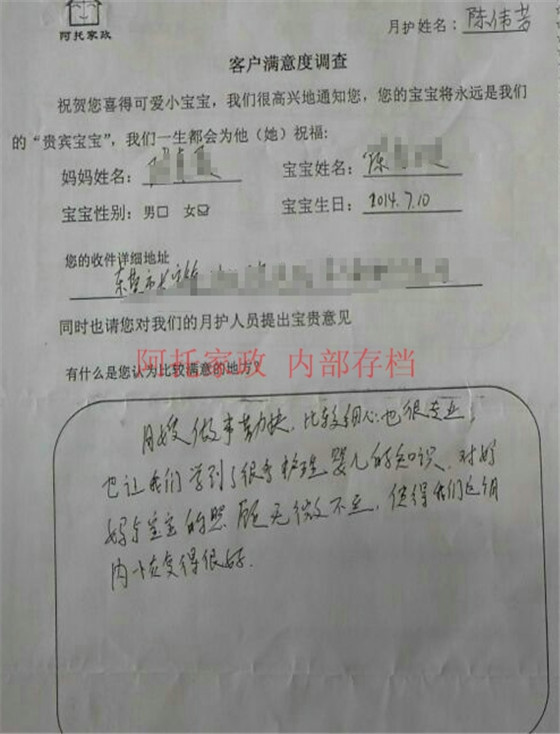 阿托家政
月护姓名：陈伟芳
客户满意度调查
祝贺您喜得可爱小宝宝，我们很高兴地通知您，您的宝宝将永远是我们
的“贵宾宝宝”，我们一生都会为他（她）祝福：
妈妈姓名： 宝宝姓名：陈
宝宝性别：男□ 女☑ 宝宝生日：2014.7.10
您的收件详细地址
东莞市长安镇
同时也请您对我们的月护人员提出宝贵意见
阿托家政 内部存档
有什么是您认为比较满意的地方？
月嫂做事勤快，比较细心也很专业，
也让我们学到了很多护理婴儿的知识，对妈
妈与宝宝的照顾无微不至，使得我们这个月
内 变得很好.